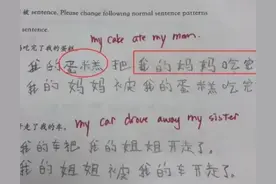 sentence. Please change following normal sentence patterns
sentence.
吃完了我的蛋糕。
my cake ate my mom.
我的蛋糕把我的妈妈吃完
我的妈妈被我的蛋糕吃完
走了我的车。
my car drove away my sister
我的车把我的姐姐开走了。
我的姐姐被我的车开走了。